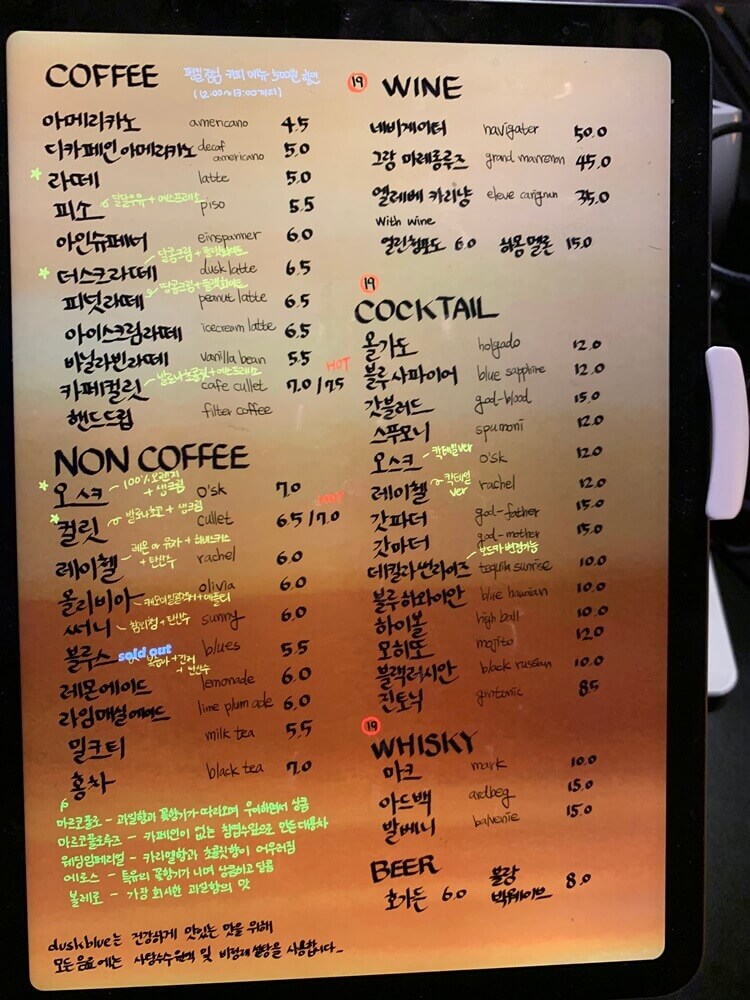 COFFEE
(12:00~18:00까지)
아메리카노 americano 4.5
디카페인 아메리카노 decaf americano 5.0
라떼 latte 5.0
피소 piso 5.5
달달우유 + 에스프레소
아인슈페너 einspanner 6.0
달콤크림 + 플랫화이트
더스크라떼 dusk latte 6.5
땅콩크림 + 플랫화이트
피넛라떼 peanut latte 6.5
아이스크림라떼 icecream latte 6.5
바닐라빈라떼 vanilla bean 5.5
HOT
발로나초콜릿 + 에스프레소
카페컬릿 cafe cullet 7.0 / 7.5
핸드드립 filter coffee
NON COFFEE
100% 오렌지 + 생크림
오스크 o'sk 7.0
HOT
발로나초코 + 생크림
컬릿 cullet 6.5 / 7.0
레몬 or 유자 + 히비스커스 + 탄산수
레이첼 rachel 6.0
올리비아 olivia 6.0
써니 sunny 6.0
+ 탄산수
블루스 sold out blues 5.5
레몬에이드 lemonade 6.0
라임매실에이드 lime plum ade 6.0
밀크티 milk tea 5.5
홍차 black tea 7.0
마르코폴로 - 과일향과 꽃향기가 따라오며 우아하면서 상큼
마르코폴로루즈 - 카페인이 없는 침엽수잎으로 만든 대용차
웨딩임페리얼 - 카라멜향과 초콜릿향이 어우러짐
에로스 - 특유의 꽃향기가 나며 상큼하고 달콤
볼레로 - 가장 화사한 과일향의 맛
duskblue는 건강하게 맛있는 맛을 위해
모든 음료에는 사탕수수원액 및 비정제 설탕을 사용합니다_
19 WINE
네비게이터 navigater 50.0
그랑 마레롱루즈 grand marrenon 45.0
엘레베 카리냥 eleve carignan 35.0
With wine
얼린청포도 6.0 하몽멜론 15.0
19
COCKTAIL
올가도 holgado 12.0
블루사파이어 blue sapphire 12.0
갓블러드 god-blood 15.0
스푸모니 spumoni 12.0
칵테일ver
오스크 o'sk 12.0
칵테일 ver
레이첼 rachel 12.0
갓파더 god-father 15.0
갓마더 god-mother 15.0
보드카 변경가능
데킬라썬라이즈 tequila sunrise 10.0
블루하와이안 blue hawaiian 10.0
하이볼 high ball 10.0
모히또 mojito 12.0
블랙러시안 black russian 10.0
진토닉 gintonic 8.5
19
WHISKY
마크 mark 10.0
아드백 ardbeg 15.0
발베니 balvenie 15.0
BEER
호가든 6.0 블랑 빅웨이브 8.0